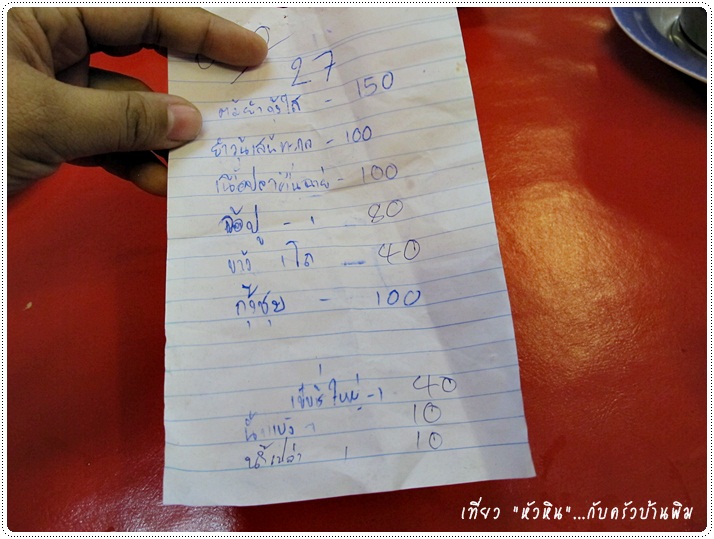 27
ต้มยำกุ้งใส - 150
ยำวุ้นเส้นทะเล - 100
เนื้อปลาผัดขึ้นฉ่าย - 100
จ้อปู - 1 - 80
ข้าว 1 โถ - 40
กุ้งชุบ - 100
เป๊ปซี่ใหญ่ - 1 40
น้ำแข็ง 1 10
น้ำเปล่า 1 10
เที่ยว "หัวหิน"...กับครัวบ้านพิม